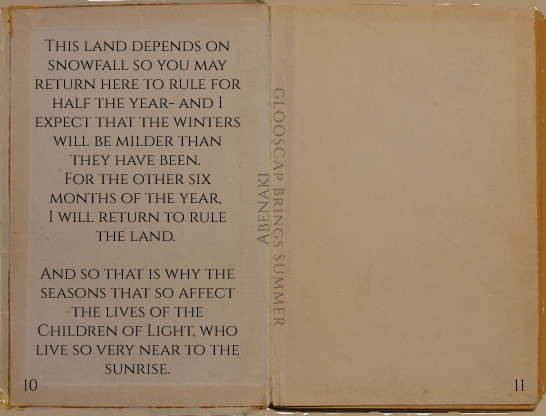 This land depends on
snowfall so you may
return here to rule for
half the year- and I
expect that the winters
will be milder than
they have been.
For the other six
months of the year,
I will return to rule
the land.
And so that is why the
seasons that so affect
the lives of the
Children of Light, who
live so very near to the
sunrise.
10
Abenaki
Glooscap Brings Summer
11